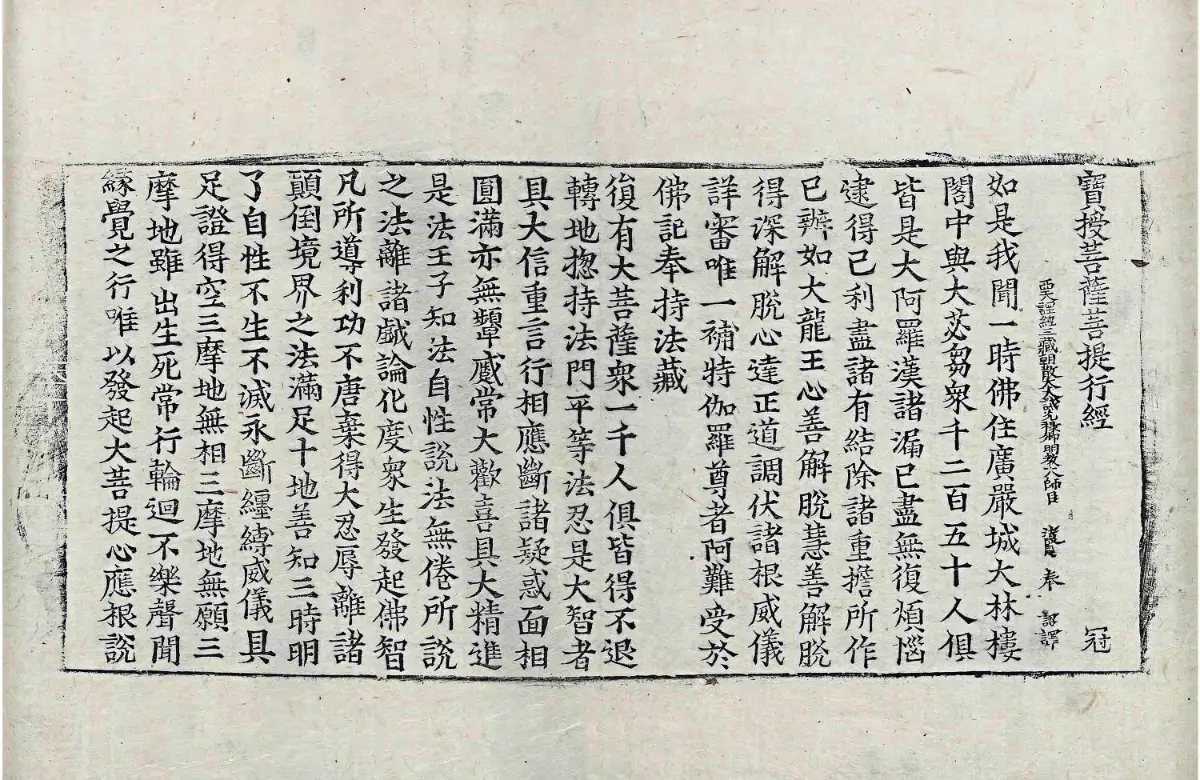 寶授菩薩菩提行經 冠
西天譯經三藏朝散大夫試鴻臚卿明教大師臣法賢奉 詔譯
如是我聞一時佛住廣嚴城大林樓
閣中與大苾芻衆千二百五十人俱
皆是大阿羅漢諸漏已盡無復煩惱
逮得己利盡諸有結除諸重擔所作
已辦如大龍王心善解脫慧善解脫
得深解脫心達正道調伏諸根威儀
詳審唯一補特伽羅尊者阿難受於
佛記奉持法藏
復有大菩薩衆一千人俱皆得不退
轉地揔持法門平等法忍是大智者
具大信重言行相應斷諸疑惑面相
圓滿亦無顰蹙常大歡喜具大精進
是法王子知法自性說法無倦所說
之法離諸戲論化度衆生發起佛智
凡所導利功不唐棄得大忍辱離諸
顚倒境界之法滿足十地善知三時明
了自性不生不滅永斷纏縛威儀具
足證得空三摩地無相三摩地無願三
摩地雖出生死常行輪迴不樂聲聞
緣覺之行唯以發起大菩提心應根說